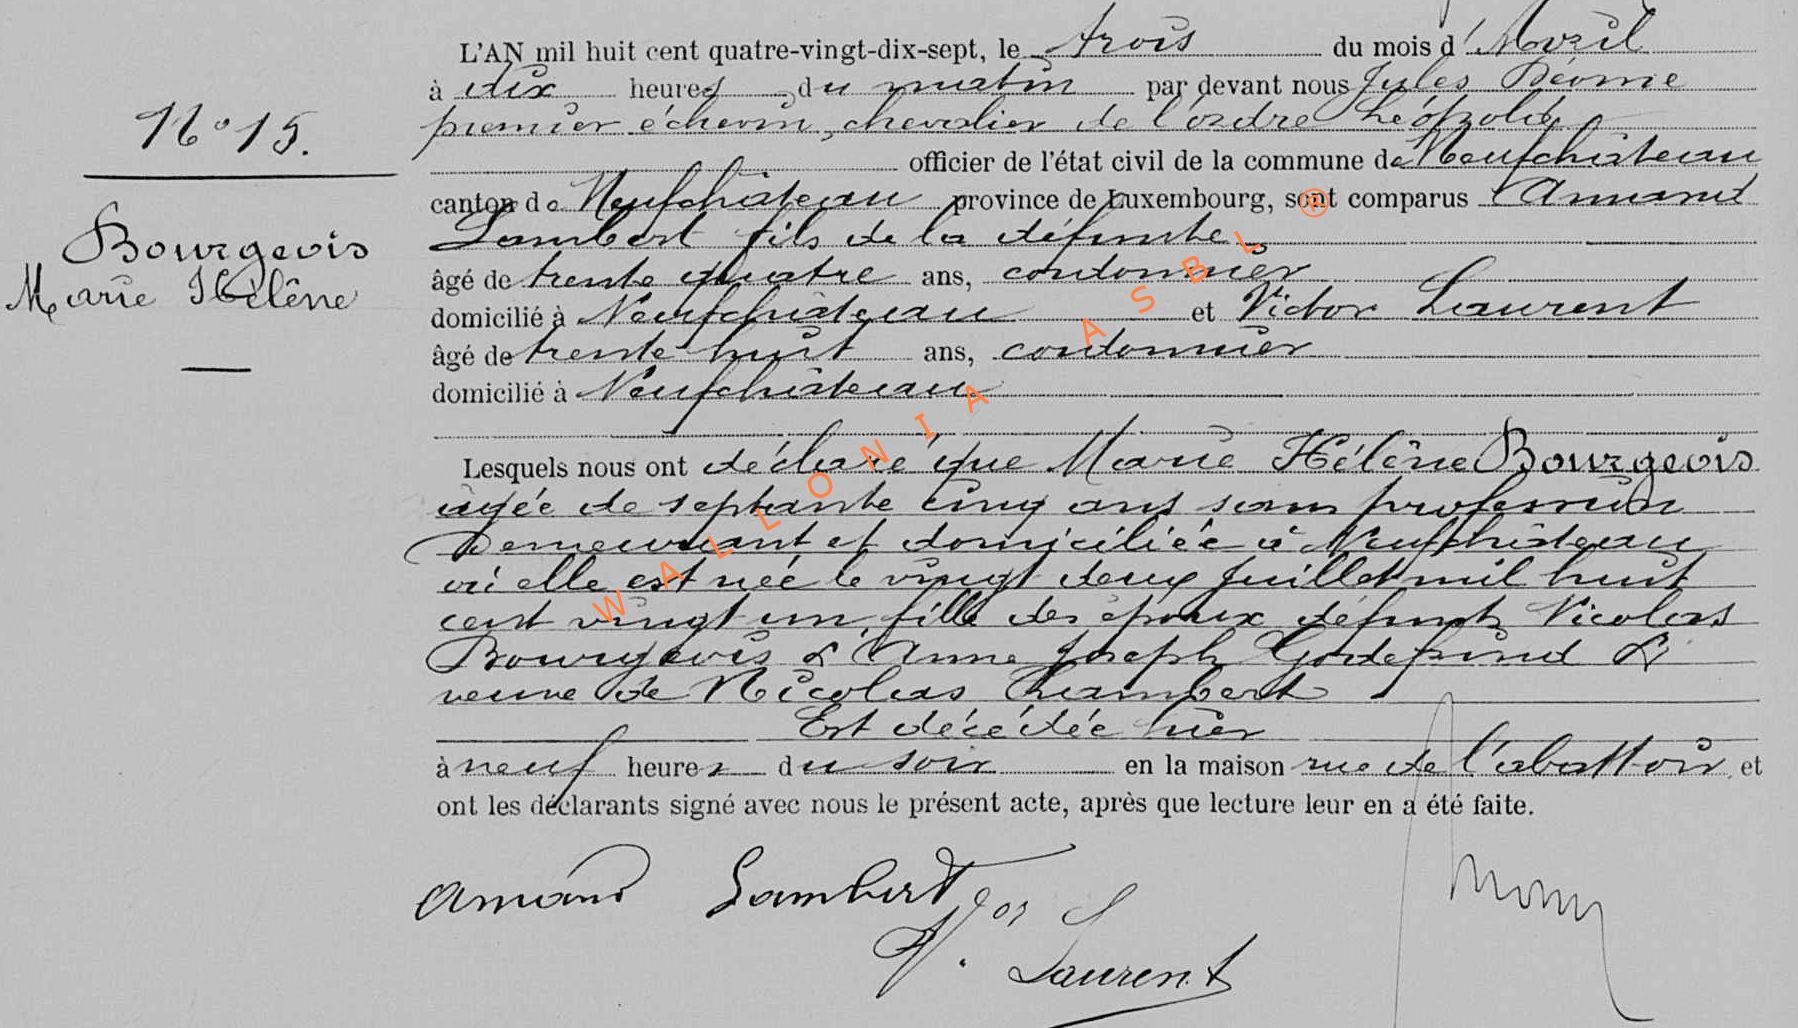 L'AN mil huit cent quatre-vingt-dix-sept, le trois du mois d'Avril
à dix heures du matin par devant nous Jules
premier échevin, chevalier de l'ordre Léopold
officier de l'état civil de la commune de Neufchâteau
N° 15.
canton de Neufchâteau province de Luxembourg, sont comparus Armand
Lambert fils de la défunte
Bourgeois
Marie Hélène
âgé de trente quatre ans, cordonnier
domicilié à Neufchâteau et Victor Laurent
âgé de trente huit ans, cordonnier
domicilié à Neufchâteau
Lesquels nous ont déclaré que Marie Hélène Bourgeois
âgée de septante cinq ans sans profession
Demeurant et domiciliée à Neufchâteau
où elle est née le vingt deux Juillet mil huit
cent vingt un, fille des époux défunts Nicolas
Bourgeois & Anne Joseph Godefrind &
veuve de Nicolas Lambert
Est décédée hier
à neuf heures du soir en la maison rue de l'abattoir, et
ont les déclarants signé avec nous le présent acte, après que lecture leur en a été faite.
Armand Lambert
Laurent
WALLONIA ASBL ®